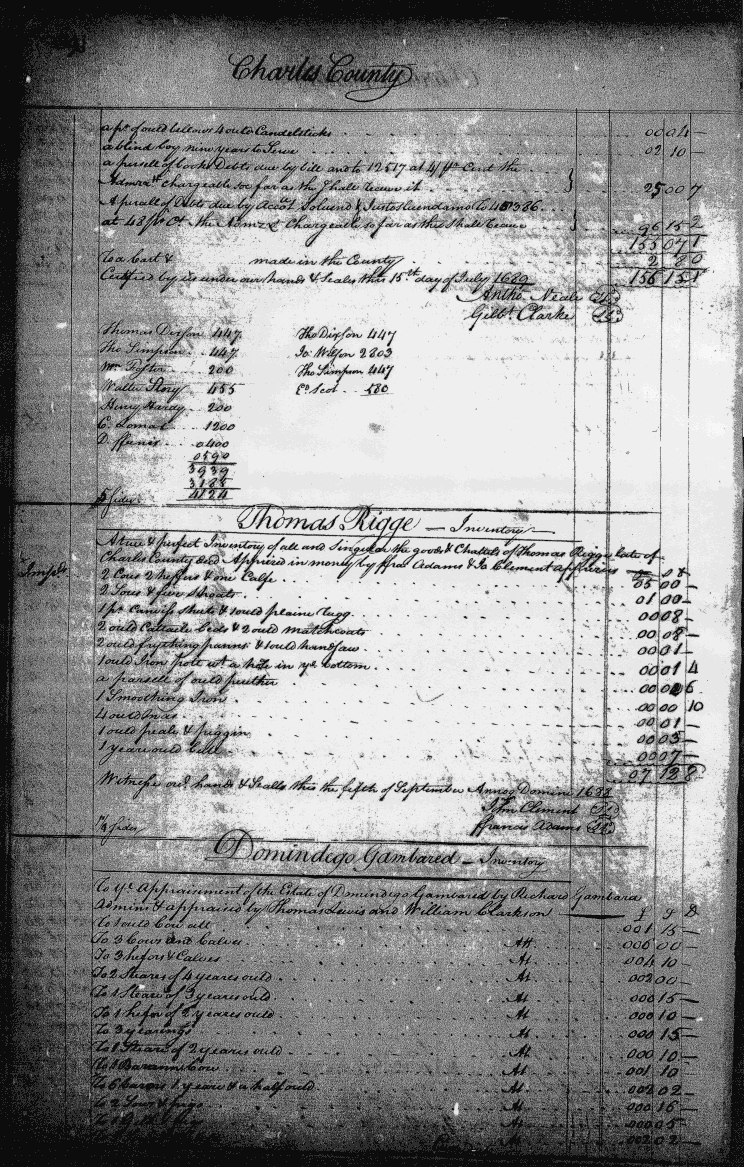 Charles County
a pr of ould bellows 4 ould Candelsticks 00 04 –
a blind boy nine years to Serve 02 10 –
a persell of books Debts due by bill amto 12517 at 4/ pr Cent the
Admrx chargeable so far as the Shall receve it 25 00 7
A persll of Debts due by Accot
at 48 pr Ct. the Admrx Chargeable so far as this Shall 96 15 2
155 07 1
To a Cart & made in the County 2 8 0
Certified by us under our hands & Seales this 15th day of July 1689 156 15 1
Antho. Neale
Gilbt. Clarke
Thomas Dixson 447 Tho Dixson 447
Tho Simpson 447 Jo: Wilson 2803
Wm 200 Tho Simpson 447
Walter Story 455 Ed Scot 580
Henry Hardy 200
C. Lomax 1200
D ffranes 0400
0590
3939
3185
4124
5 sides
Thomas Rigge – Inventory
A true & perfect Inventory of all and Singular the goods & Chattels of Thomas Rigge late of
Charles County decd Apprized in money by ffra: Adams & Jo Clement Apprizers
Imprs 2 Cows 2 heffers & one Calfe 05 00 –
2 Sows & five Shoats 01 00 –
1 pr Canvis sheets & 1 ould plaine Rugg 00 08 –
2 ould Cattaile beds & 2 ould matchcoats 00 08 –
2 ould frything panns & 1 ould handsaw 00 01 –
1 ould Iron pott wt a hole in ye bottom 00 01 4
a parsell of ould peuther 00 00 6
1 Smoothing Iron 00 00 10
4 ould 00 01 –
1 ould peale & piggin 00 03 –
1 yeare ould 00 07 –
07 12 8
Witnesse our hands & Sealls this the fifth of September Annoq Domini 1688
John Clement
ffrancis Adams
1/4 sides
Domindego Gambared – Inventory
To ye Appraisment of the Estate of Domindego Gambared by Richard Gambara
Admins & appraised by Thomas Lewis and William Clarkson £ S D
To 1 ould Cow att 001 15 –
To 3 Cows and Calves Att 006 00 –
To 3 hefors & Calves At 004 10 –
To 2 Steares of 4 yeares ould At 002 00 –
To 1 Steare of 3 yeares ould At 000 15 –
To 1 hefor of 2 yeares ould At 000 10 –
To 3 yearings At 000 15 –
To 1 Steare of 2 yeares ould At 000 10 –
To 1 Barann Cow At 001 10 –
To 6 barrows 1 yeare & a half ould At 002 02 –
To 2 Sows & piggs At 000 16 –
At 000 05 –
At 002 02 –